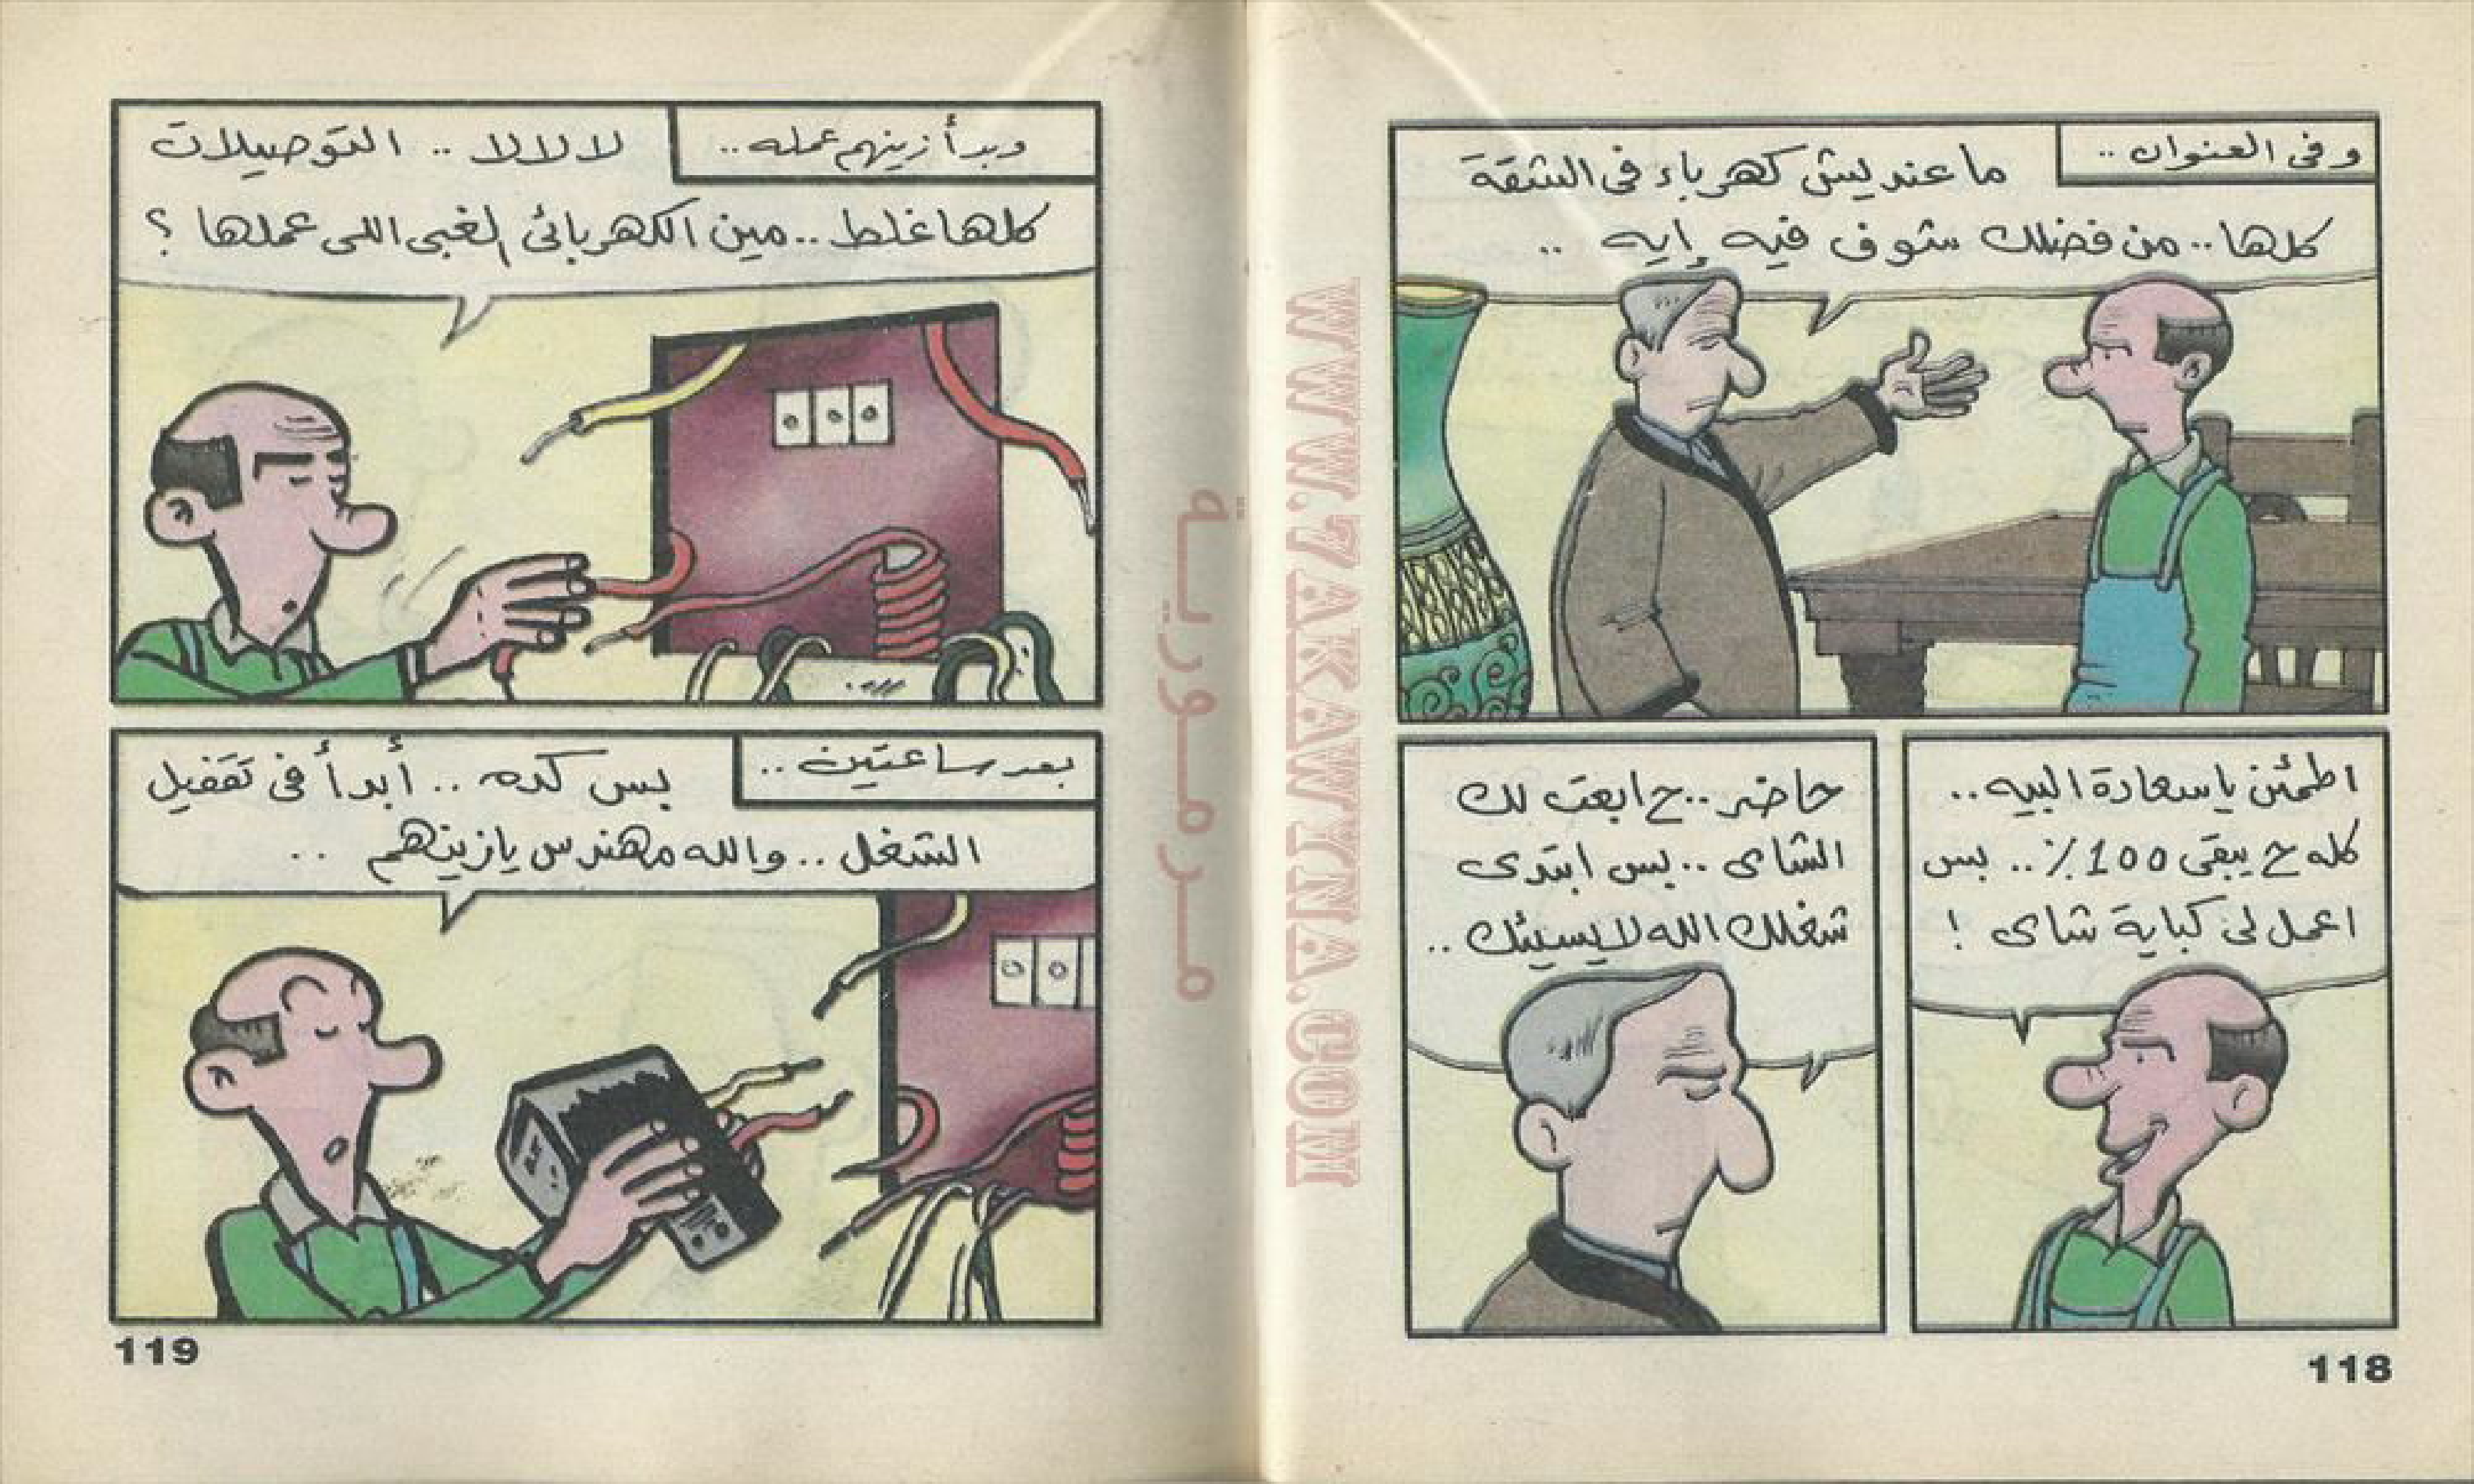 وفى العنوان ..
ما عنديش كهرباء فى الشقة
كلها .. من فضلك شوف فيه إيه ..
اطمئن ياسعادة البيه ..
كله ح يبقى 100٪ .. بس
اعمل لى كباية شاى !
حاضر .. ح ابعت لك
الشاى .. بس ابتدى
شغلك الله لا يسيئك ..
118
WWW.7AKAWINA.COM
مرمورية
وبدأ زينهم عمله ..
لا لا لا .. التوصيلات
كلها غلط .. مين الكهربائى الغبى اللى عملها ؟
بعد ساعتين ..
بس كده .. أبدأ فى تقفيل
الشغل .. والله مهندس يازينهم ..
119